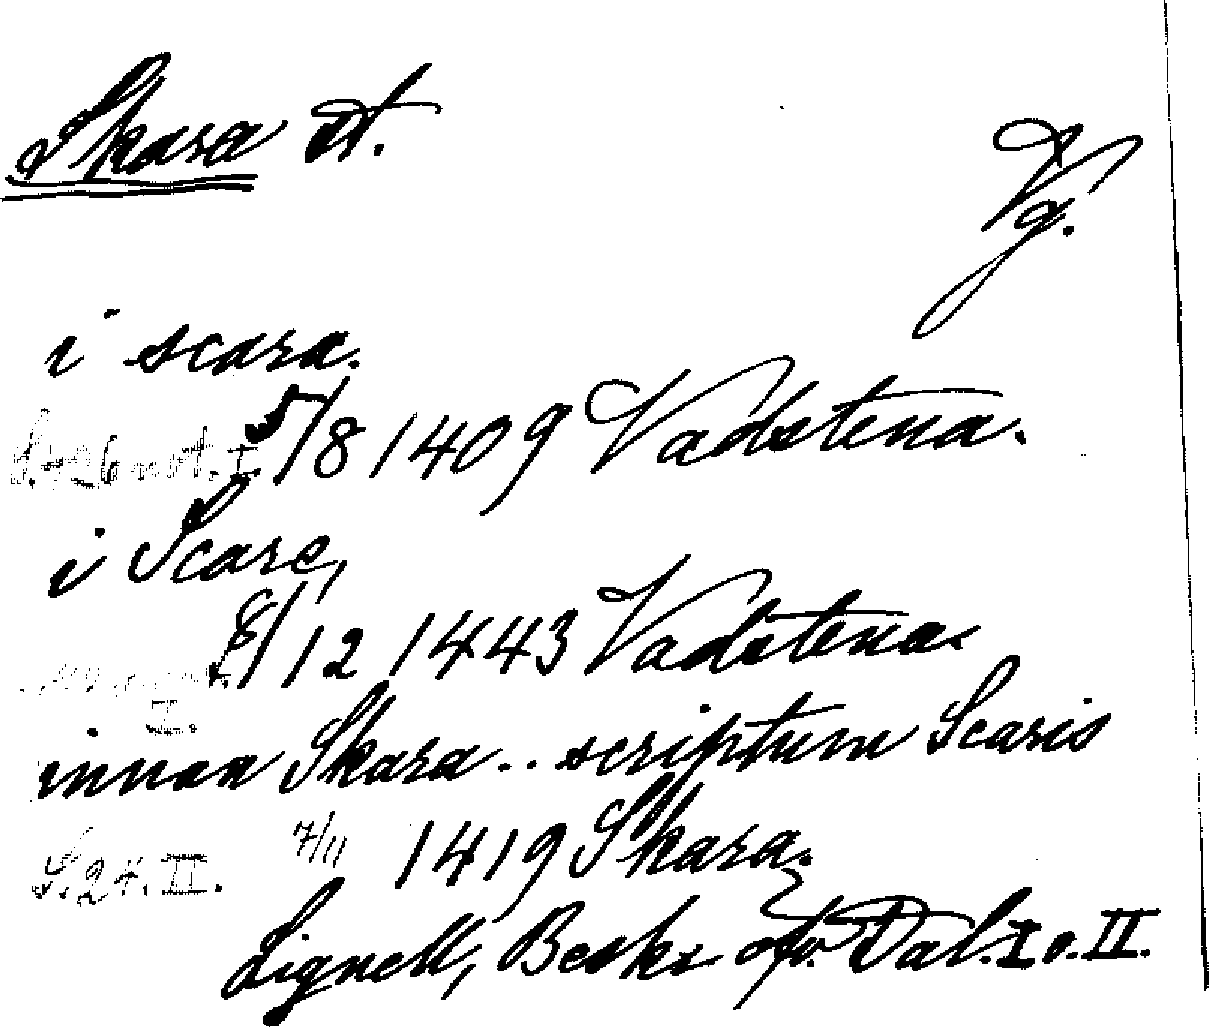 Skara st.
Vg.
i scara.
S. 126 not. I 5/8 1409 Vadstena.
i Scare,
8/12 1443 Vadstena.
I.
innan Skara .. scriptum Scaris
S. 24. II. 7/11 1419 Skara.
Lignell, Beskr. öfv. Dal. I o. II.